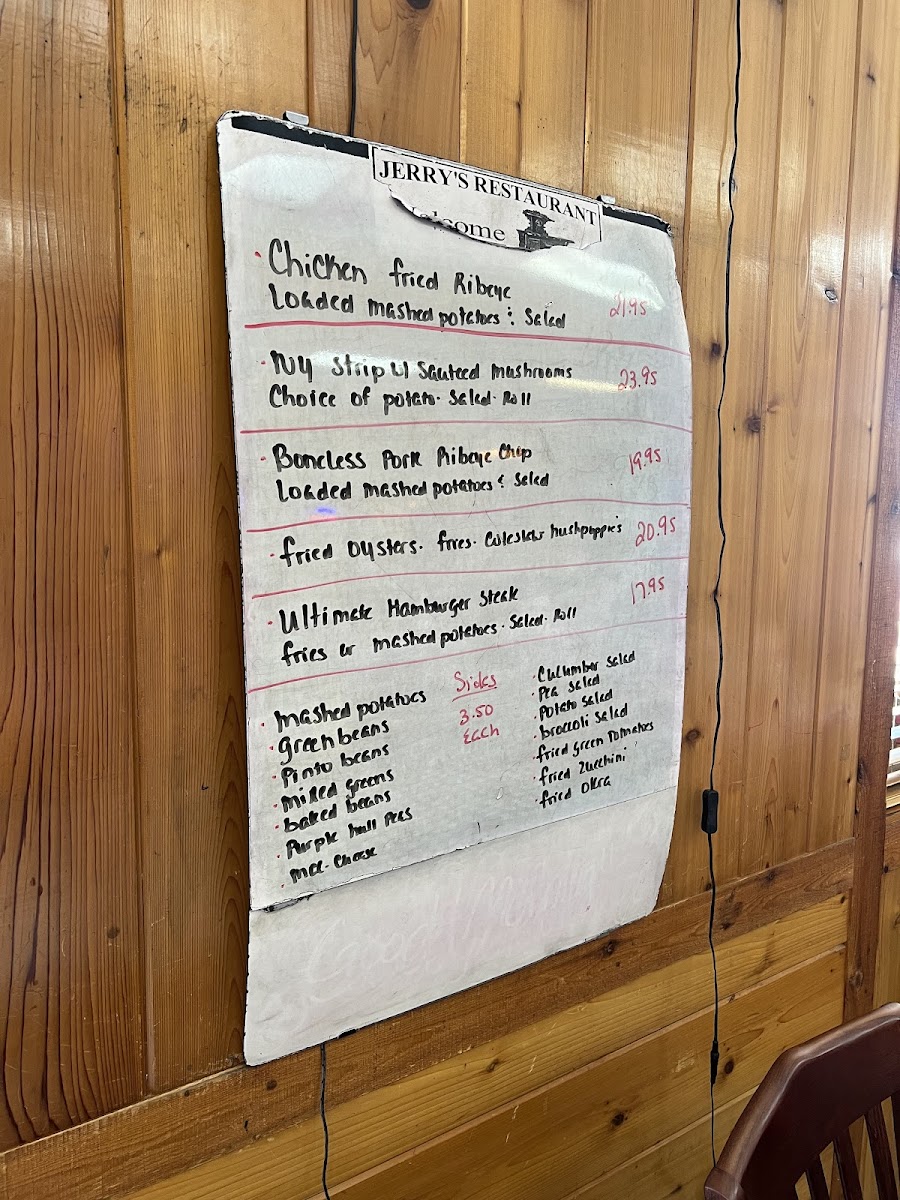 JERRY'S RESTAURANT
Welcome
· Chicken fried Ribeye
Loaded mashed potatoes & Salad 21.95
· NY Strip w/ Sauteed mushrooms
Choice of potato· Salad· Roll 23.95
· Boneless Pork Ribeye Chop
Loaded mashed potatoes & Salad 19.95
· fried oysters· fries· Coleslaw hushpuppie's 20.95
· Ultimate Hamburger Steak 17.95
fries or mashed potatoes· Salad· Roll
Sides
3.50
Each
· mashed potatoes
· green beans
· Pinto beans
· mixed greens
· baked beans
· Purple hull Peas
· mac· Cheese
· Cucumber Salad
· Pea Salad
· Potato Salad
· broccoli Salad
· fried green tomatoes
· fried Zucchini
· fried Okra